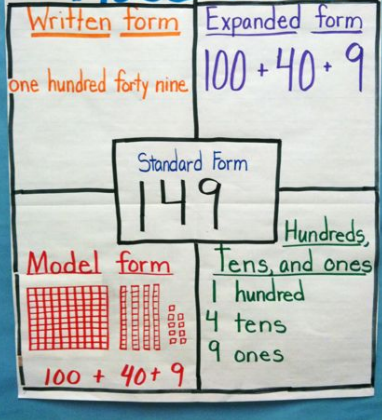 Written form
one hundred forty nine
Expanded form
100 + 40 + 9
Standard Form
149
Model form
100 + 40 + 9
Hundreds,
Tens, and ones
1 hundred
4 tens
9 ones